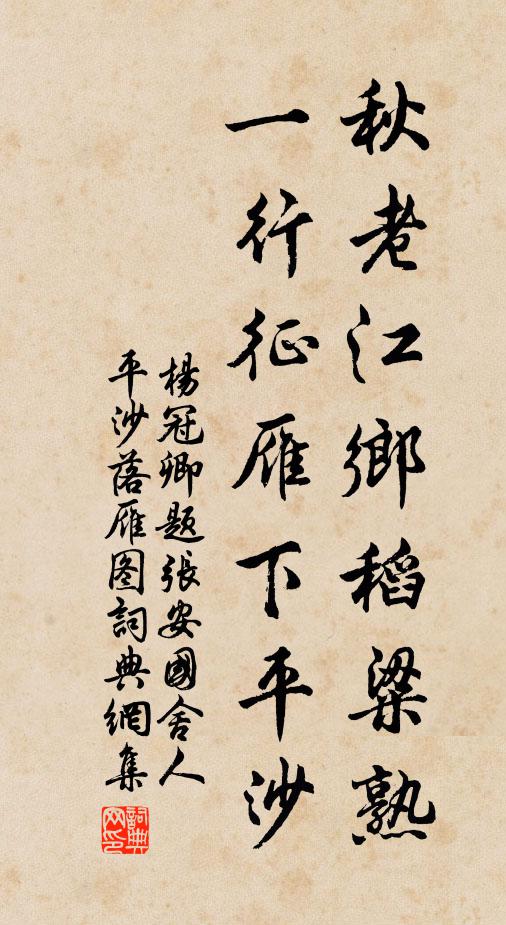 秋老江鄉稻粱熟
一行征雁下平沙
楊冠卿題張安國舍人
平沙落雁圖詞典網集
詞典
网印